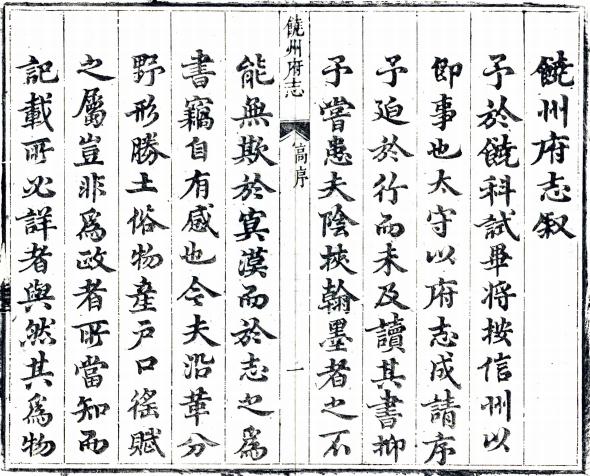 饒州府志叙
予於饒科試畢将按信州以
即事也太守以府志成請序
予迫於行而未及讀其書抑
予嘗患夫陰挾翰墨者之不
饒州府志
高序
一
能無欺於冥漠而於志之為
書竊自有感也今夫沿革分
野形勝土俗物產戶口徭賦
之屬豈非為政者所當知而
記載所必詳者與然其為物